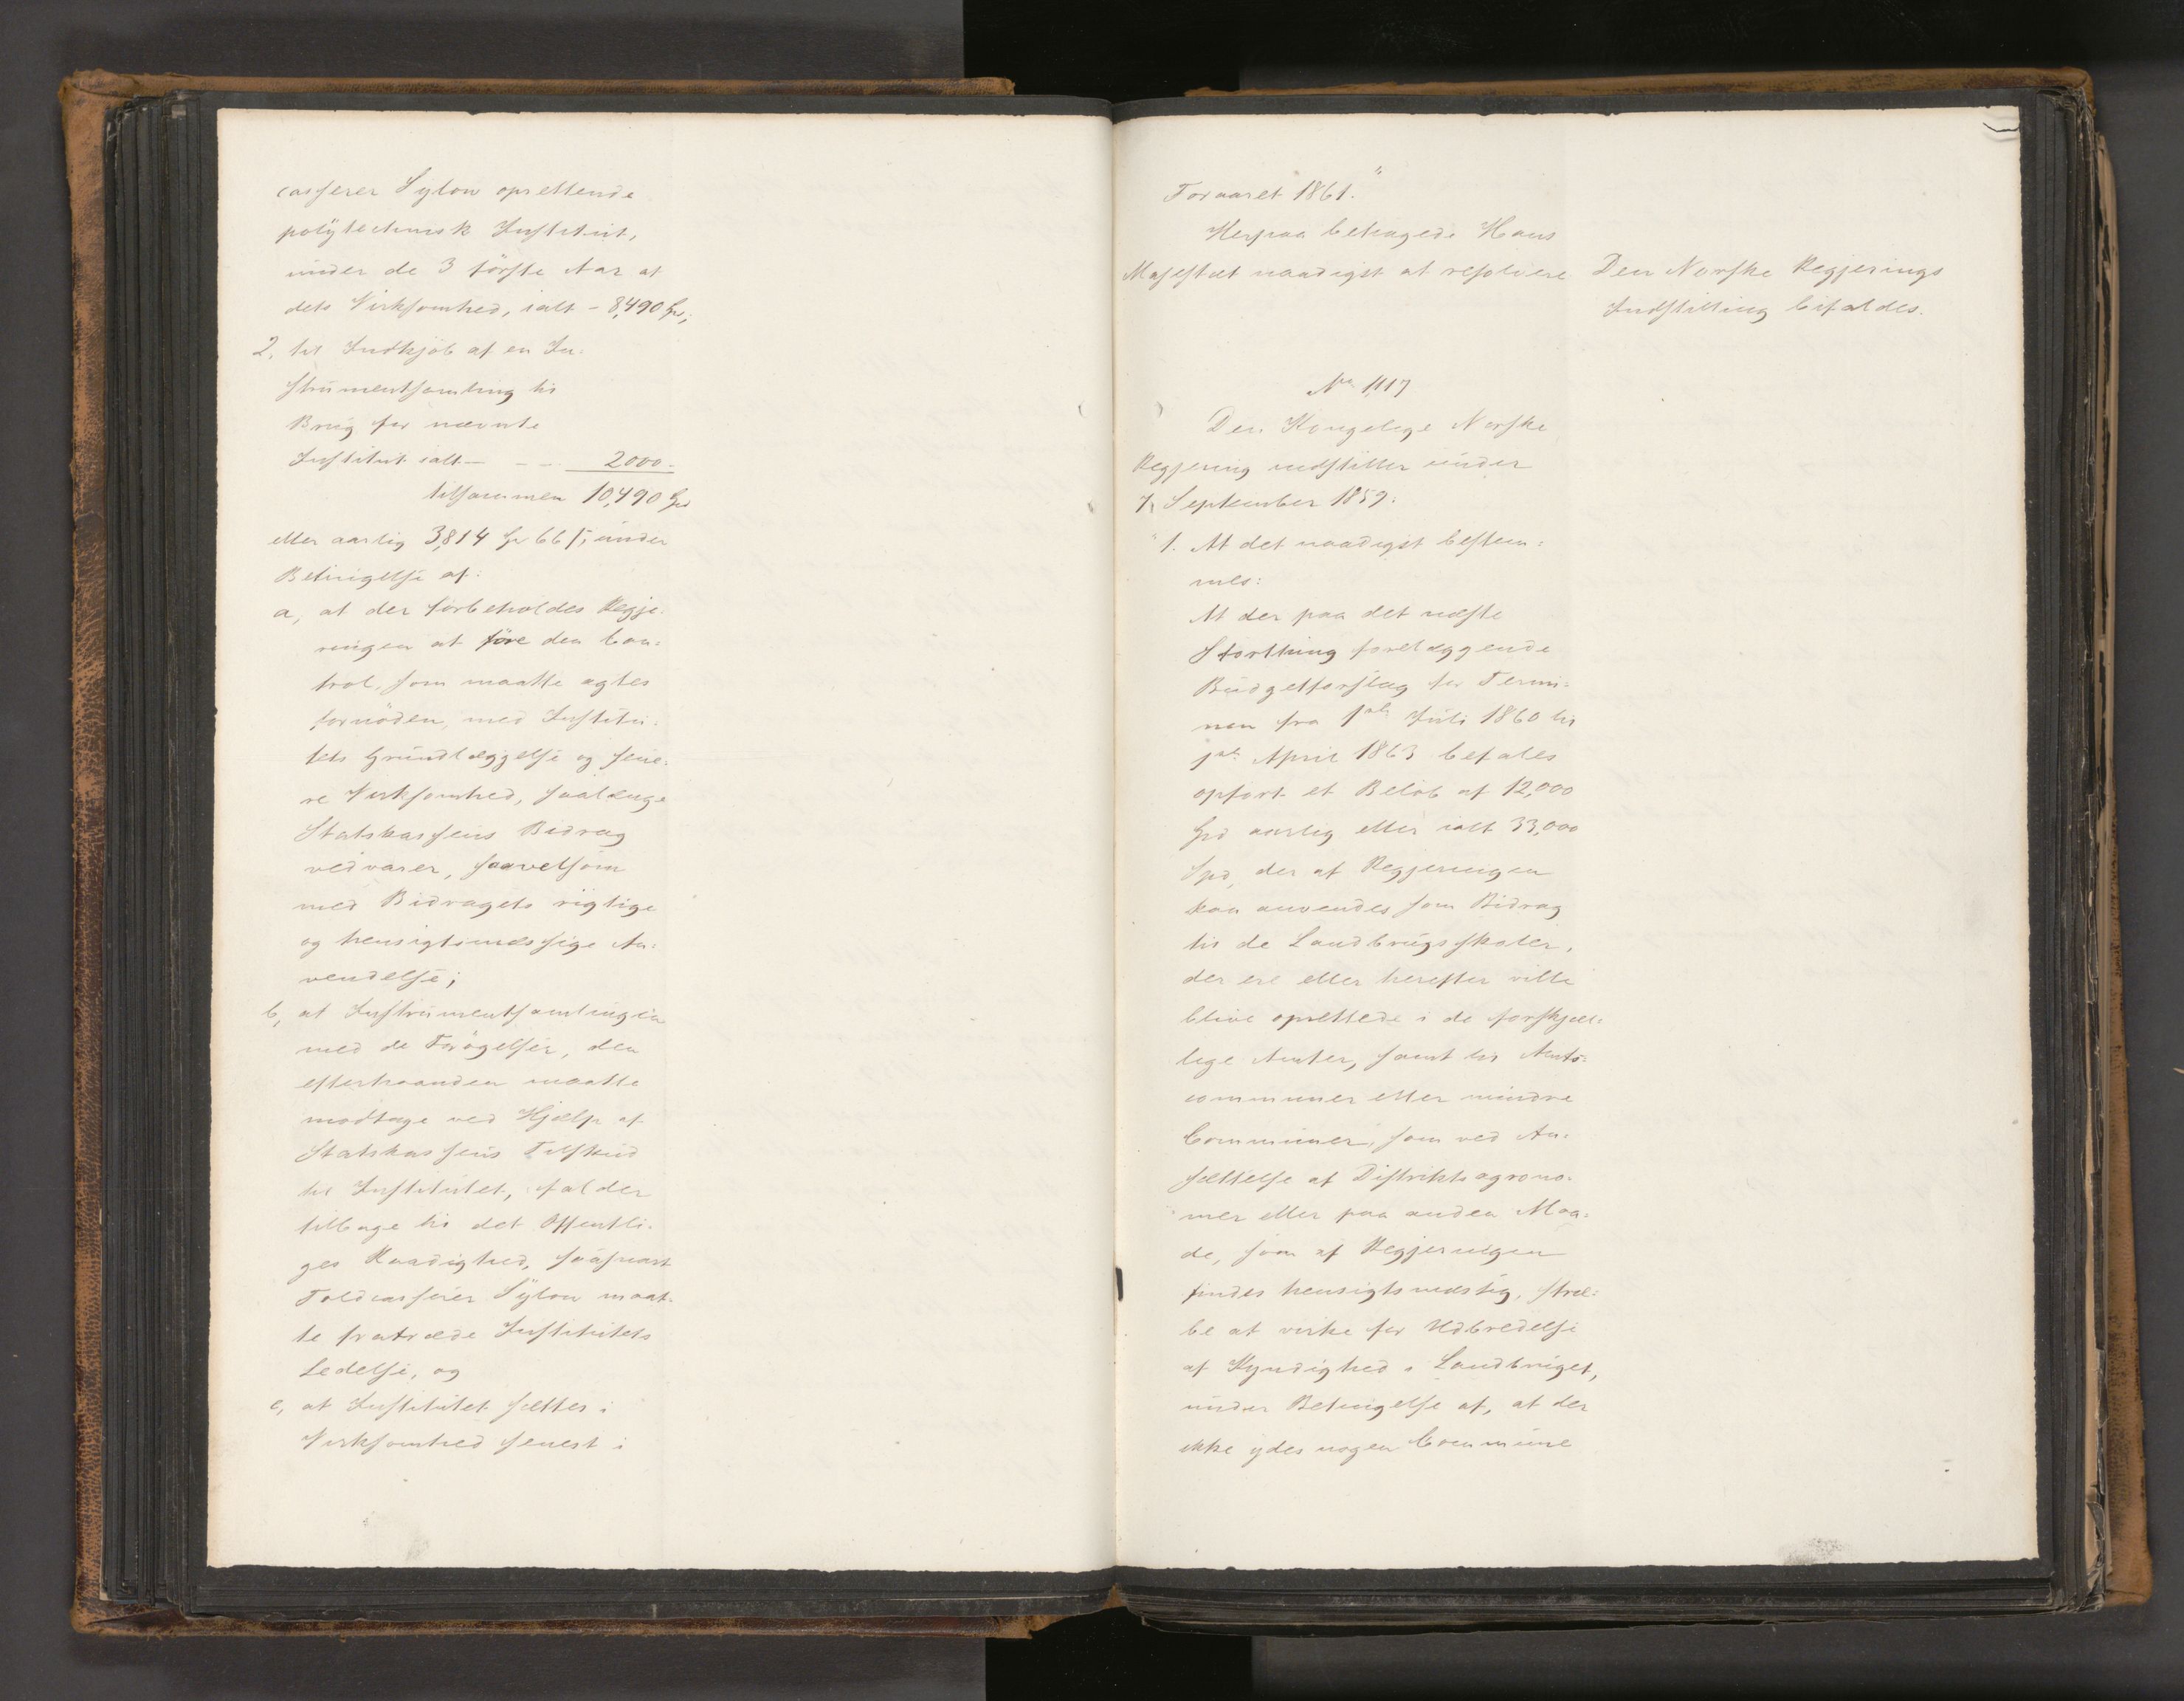 casserer Sylow oprettende
polytechnisk Institut,
under de 3 første Aar af
dets Virksomhed, ialt - 8,490 Spd,
2, til Indkjøb af en In-
strumentsamling til
Brug for nævnte
Institut ialt - - - 2000 -
tilsammen 10,490 Spd
eller aarlig 3,814 Sp 66 ſ, under
Betingelse af:
a, at der forbeholdes Regje-
ringen at føre den Con-
trol, som maatte agtes
fornøden, med Institu-
tets Grundlæggelse og sene-
re Virksomhed, saalænge
Statskassens Bidrag
vedvarer, saavelsom
med Bidragets rigtige
og hensigtsmæssige An-
vendelse;
b, at Instrumentsamlingen
med de Forøgelser, den
efterhaanden maatte
modtage ved Hjælp af
Statskassens Tilskud
til Institutet, falder
tilbage til det Offentli-
ges Raadighed, saasnart
Toldcasserer Sylow maat-
te fratræde Institutets
Ledelse, og
c, at Institutet sættes i
Virksomhed senest i
Foraaret 1861."
Herpaa betragede Hans
Majestæt naadigst at resolvere
Den Norske Regjerings
Indstilling bifaldes.
No 1,117
Den Kongelige Norske
Regjering indstiller under
7 September 1859:
"1. At det naadigst bestem-
mes:
At der paa det næste
Storthing forelæggende
Budgetforslag for Termi-
nen fra 1ste Juli 1860 til
1ste April 1863 befales
opført et Beløb af 12,000
Spd aarlig eller ialt 33,000
Spd, der af Regjeringen
kan anvendes som Bidrag
til de Landbrugsskoler,
der ere eller herefter ville
blive oprettede i de forskjel-
lige Amter, samt til Amts-
communer eller mindre
Communer, som ved An-
sættelse af Distriktsagrono-
mer eller paa anden Maa-
de, som af Regjeringen
findes hensigtsmæssig, stræ-
be at virke for Udbredelse
af Kyndighed i Landbruget,
under Betingelse af, at der
ikke ydes nogen Commune